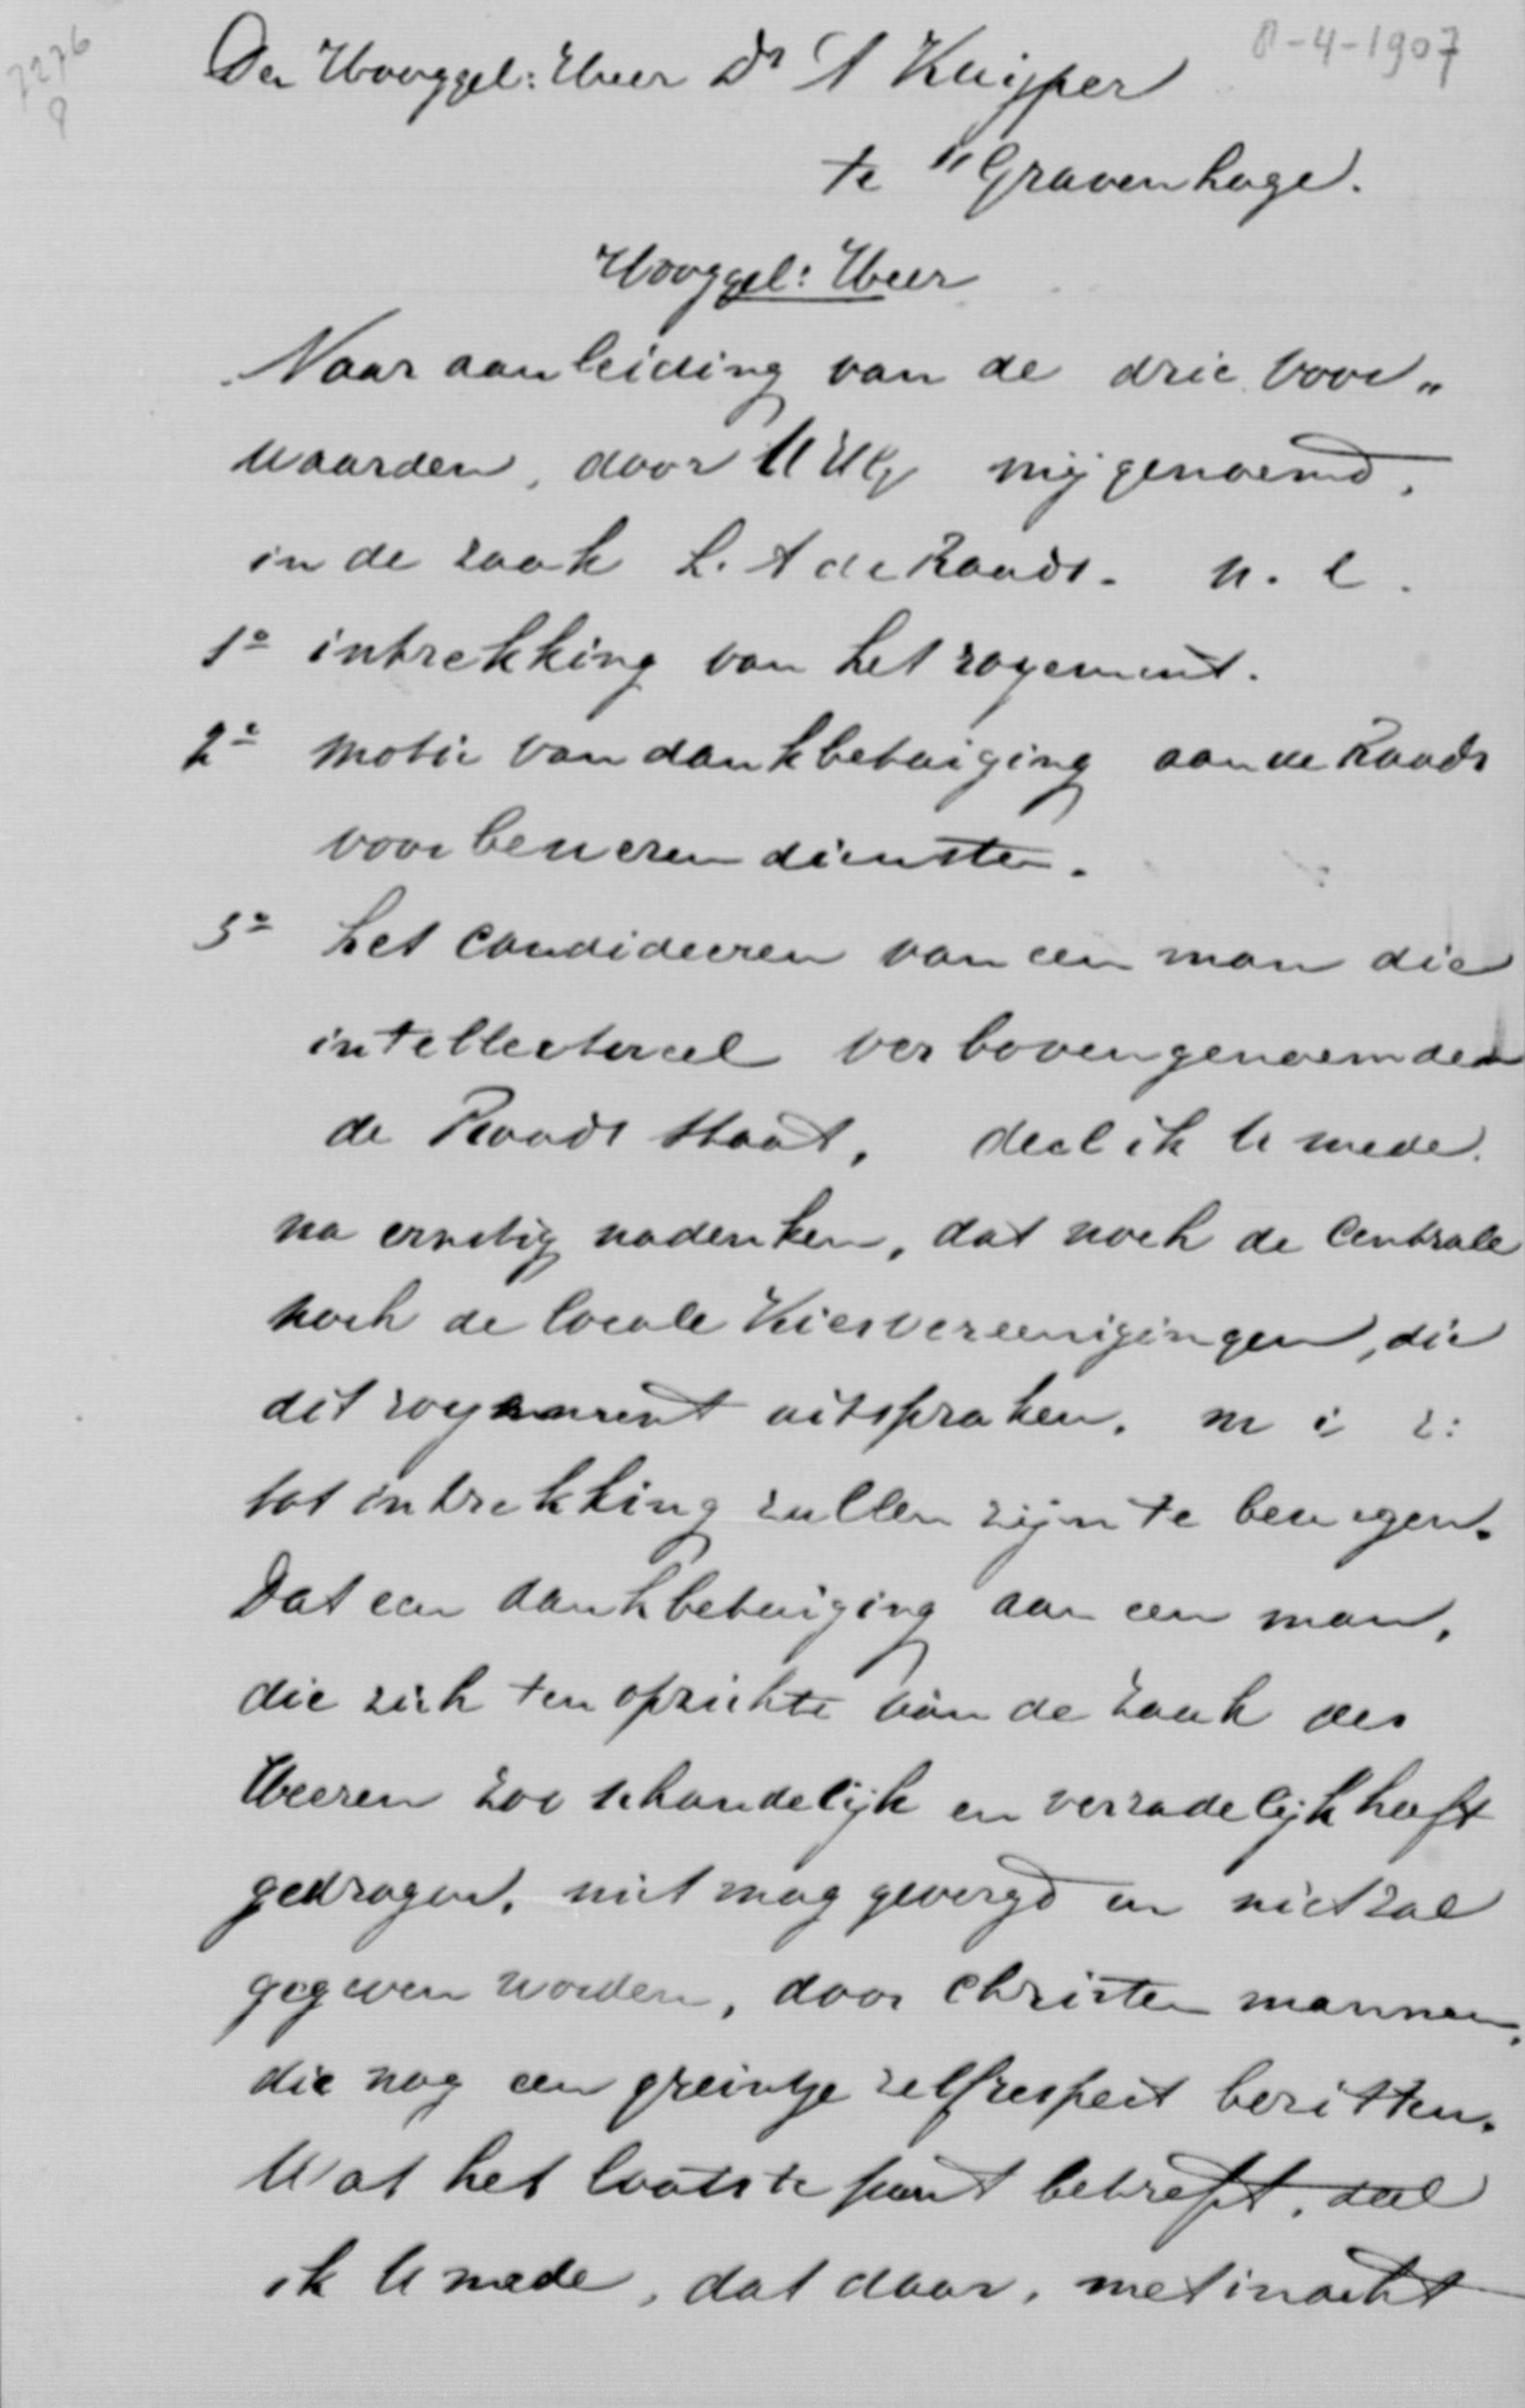 7276
8
8-4-1907
Den Hooggel: Heer Dr A Kuijper
te 's Gravenhage.
Hooggel: Heer
Naar aanleiding van de drie voor„
waarden, door UHG mij genoemd,
in de zaak L. A de Raadt. n. l.
1º intrekking van het royement.
2º motie van dankbetuiging aan de Raadt
voor bewezen diensten.
3º het candideeren van een man die
intellectueel ver bovengenoemden
de Raadt staat, deel ik U mede.
na ernstig nadenken, dat noch de Centrale
noch de locale Kiesvereenigingen, die
dit royement uitspraken. m i z:
tot intrekking zullen zijn te bewegen.
Dat een dankbetuiging aan een man,
die zich ten opzichte van de zaak des
Heeren zoo schandelijk en verradelijk heeft
gedragen, niet mag gevergd en niet zal
gegeven worden, door christen mannen,
die nog een greintje zelfrespect bezitten.
Wat het laatste punt betreft, deel
ik U mede, dat daar, met inacht